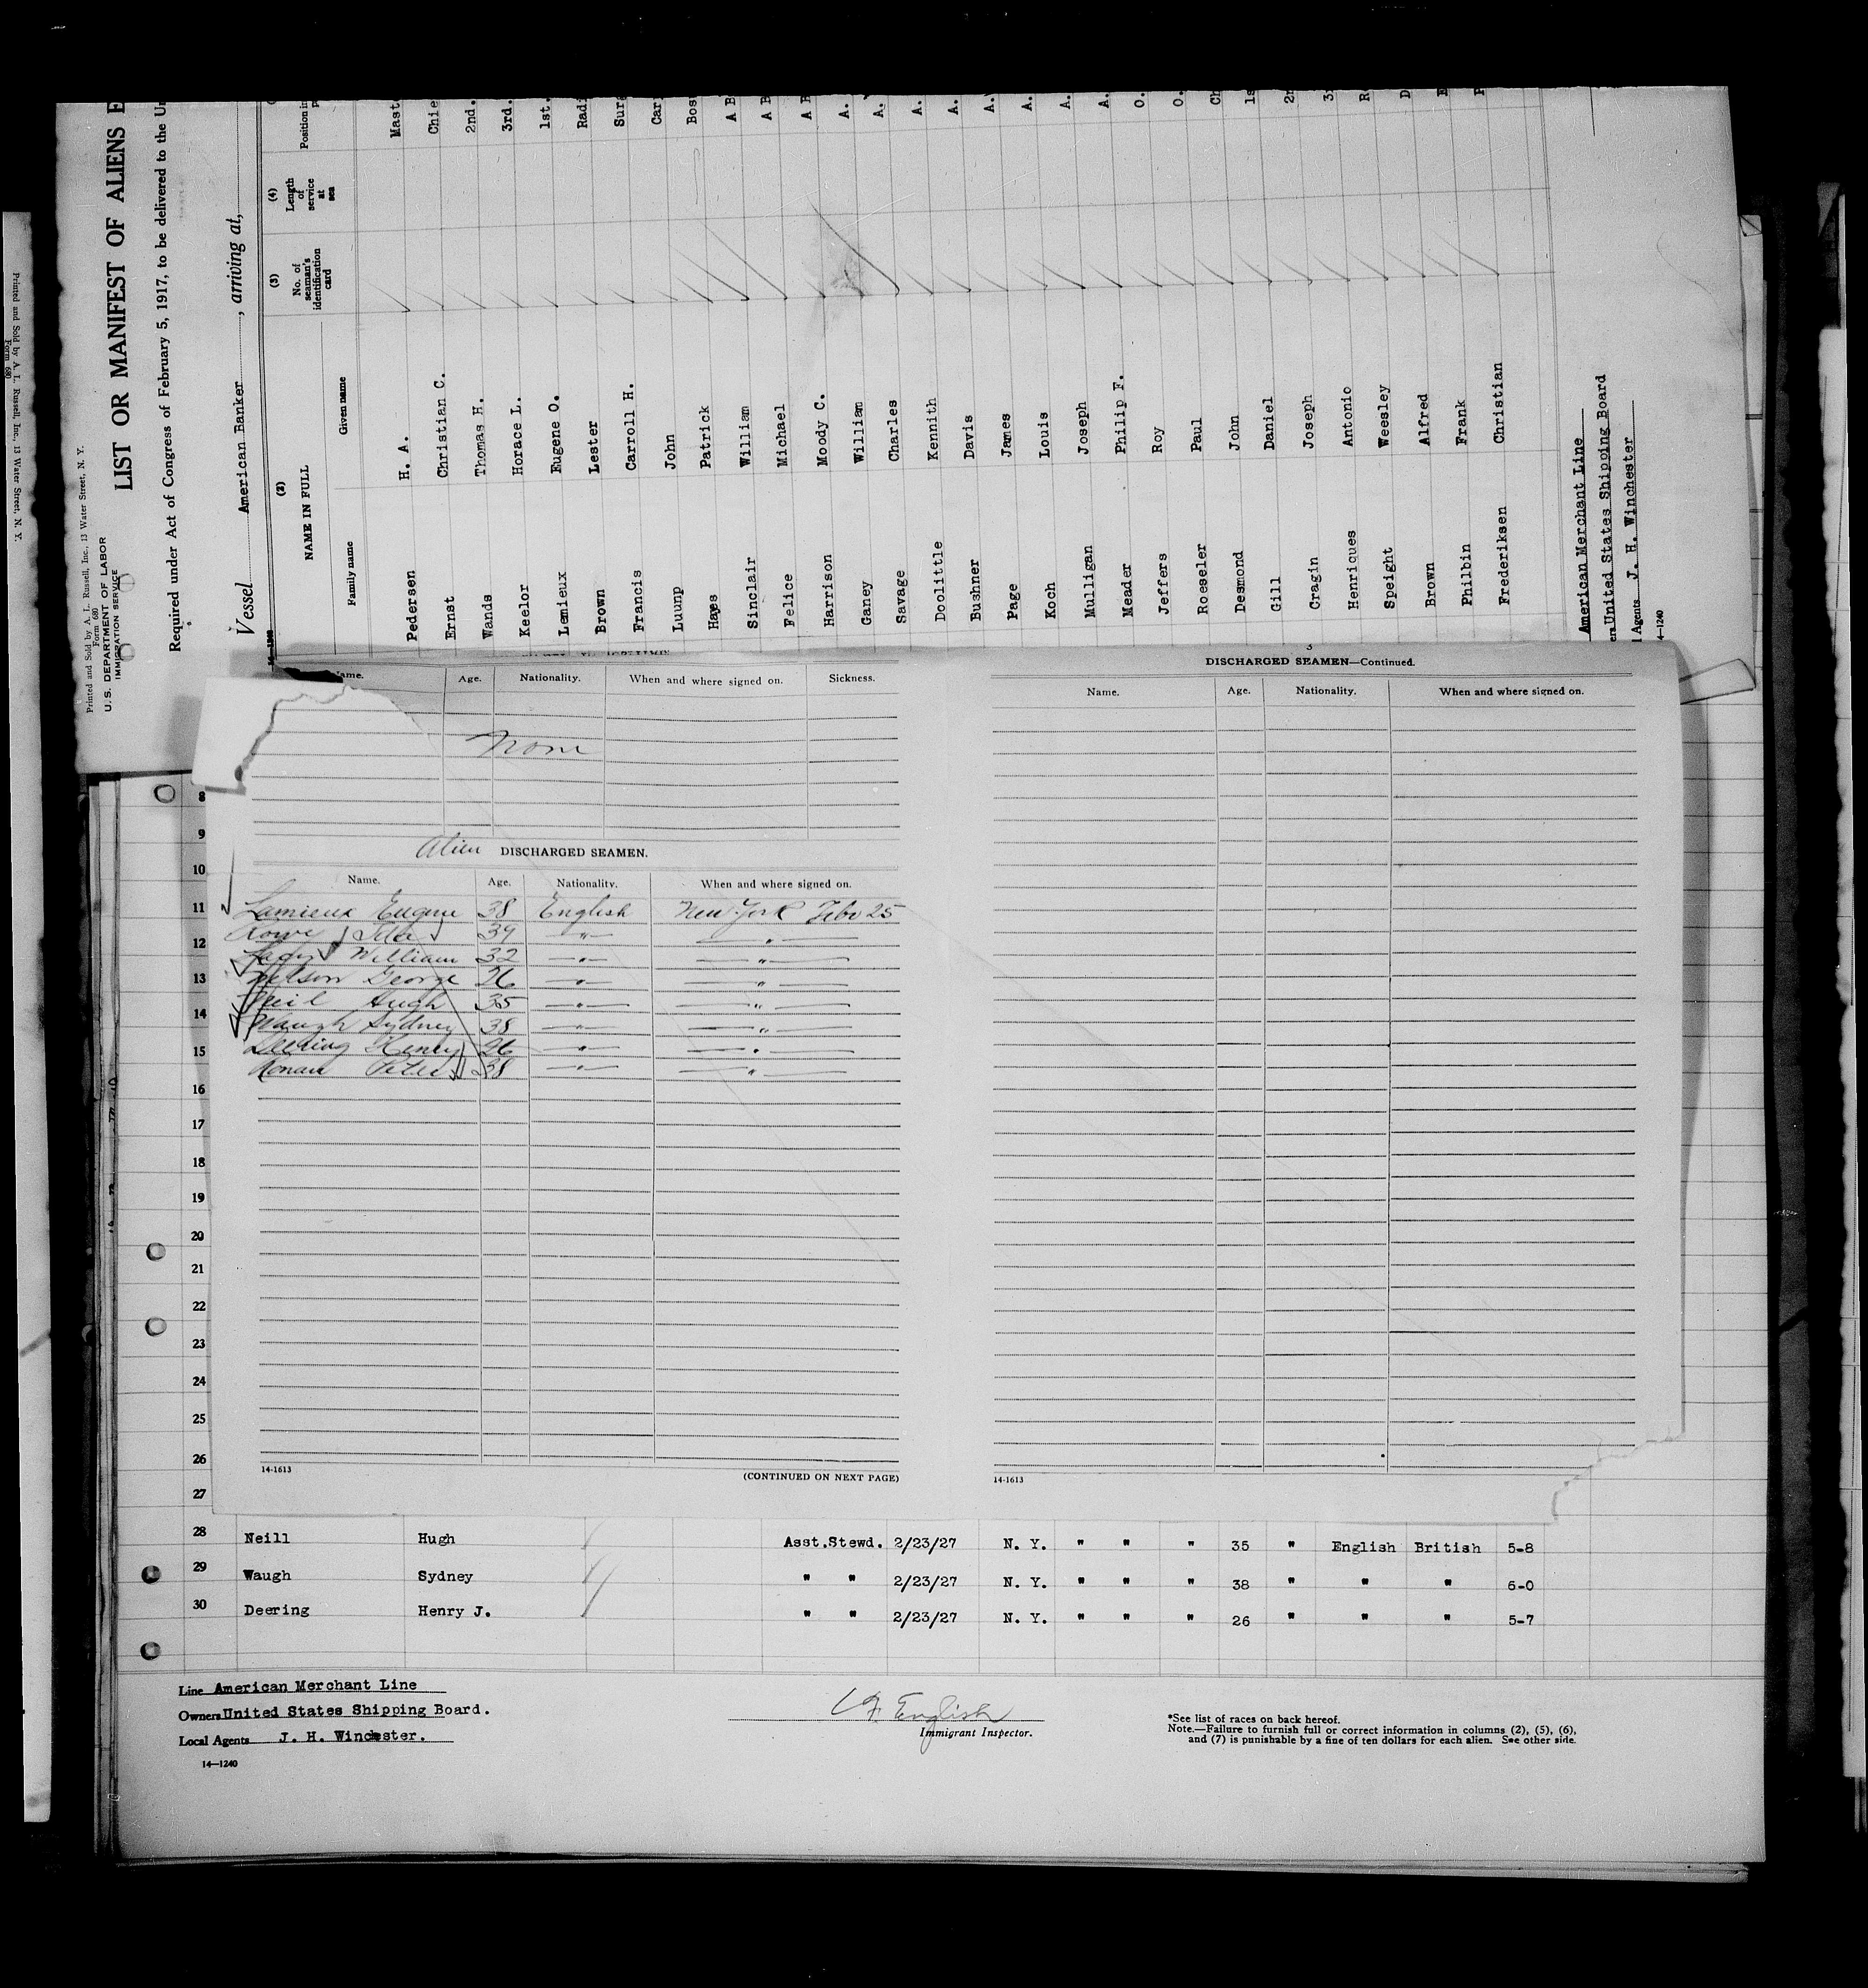 Printed and Sold by A. L. Russell, Inc., 13 Water Street, N. Y.
Form 680
Printed and Sold by A. L. Russell, Inc., 13 Water Street, N. Y.
Form 680
U. S. DEPARTMENT OF LABOR
IMMIGRATION SERVICE
LIST OR MANIFEST OF ALIENS E
Required under Act of Congress of February 5, 1917, to be delivered to the Un
Vessel American Banker, arriving at,
(2) (3) (4)
NAME IN FULL No. of seaman's identification card Length of service at sea Position in
Family name Given name
Pedersen H. A. Mast
Ernst Christian C. Chie
Wands Thomas H. 2nd.
Keelor Horace L. 3rd.
Lemieux Eugene O. 1st.
Brown Lester Radi
Francis Carroll H. Surg
Luunp John Car
Hayes Patrick Bos
Sinclair William A B
Felice Michael A B
Harrison Moody C. A B
Ganey William A.
Savage Charles A.
Doolittle Kennith A.
Bushner Davis A.
Page James A.
Koch Louis A.
Mulligan Joseph A.
Meader Philip F. A.
Jeffers Roy O.
Roeseler Paul O.
Desmond John Ch
Gill Daniel 1s
Cragin Joseph 2n
Henriques Antonio 3r
Speight Weesley
Brown Alfred
Philbin Frank
Frederiksen Christian
American Merchant Line
ers United States Shipping Board
l Agents J. H. Winchester
4—1240
Name. Age. Nationality. When and where signed on. Sickness.
None
Alien DISCHARGED SEAMEN.
Name. Age. Nationality. When and where signed on.
Lamieux Eugene 38 English New York Feb 25
Rowe Ida 34 " "
Lacy William 32 " "
Nelson George 26 " "
Neil Hugh 35 " "
Waugh Sydney 38 " "
Deering Henry 26 " "
Ronan Peter 38 " "
14-1613
(CONTINUED ON NEXT PAGE)
3
DISCHARGED SEAMEN—Continued.
Name. Age. Nationality. When and where signed on.
14-1613
8
9
10
11
12
13
14
15
16
17
18
19
20
21
22
23
24
25
26
27
28 Neill Hugh Asst.Stewd. 2/23/27 N. Y. " " " 35 " English British 5-8
29 Waugh Sydney " " 2/23/27 N. Y. " " " 38 " " " 6-0
30 Deering Henry J. " " 2/23/27 N. Y. " " " 26 " " " 5-7
Line American Merchant Line
Owners United States Shipping Board.
Local Agents J. H. Winchester.
14—1240
English
Immigrant Inspector.
*See list of races on back hereof.
Note.—Failure to furnish full or correct information in columns (2), (5), (6),
and (7) is punishable by a fine of ten dollars for each alien. See other side.